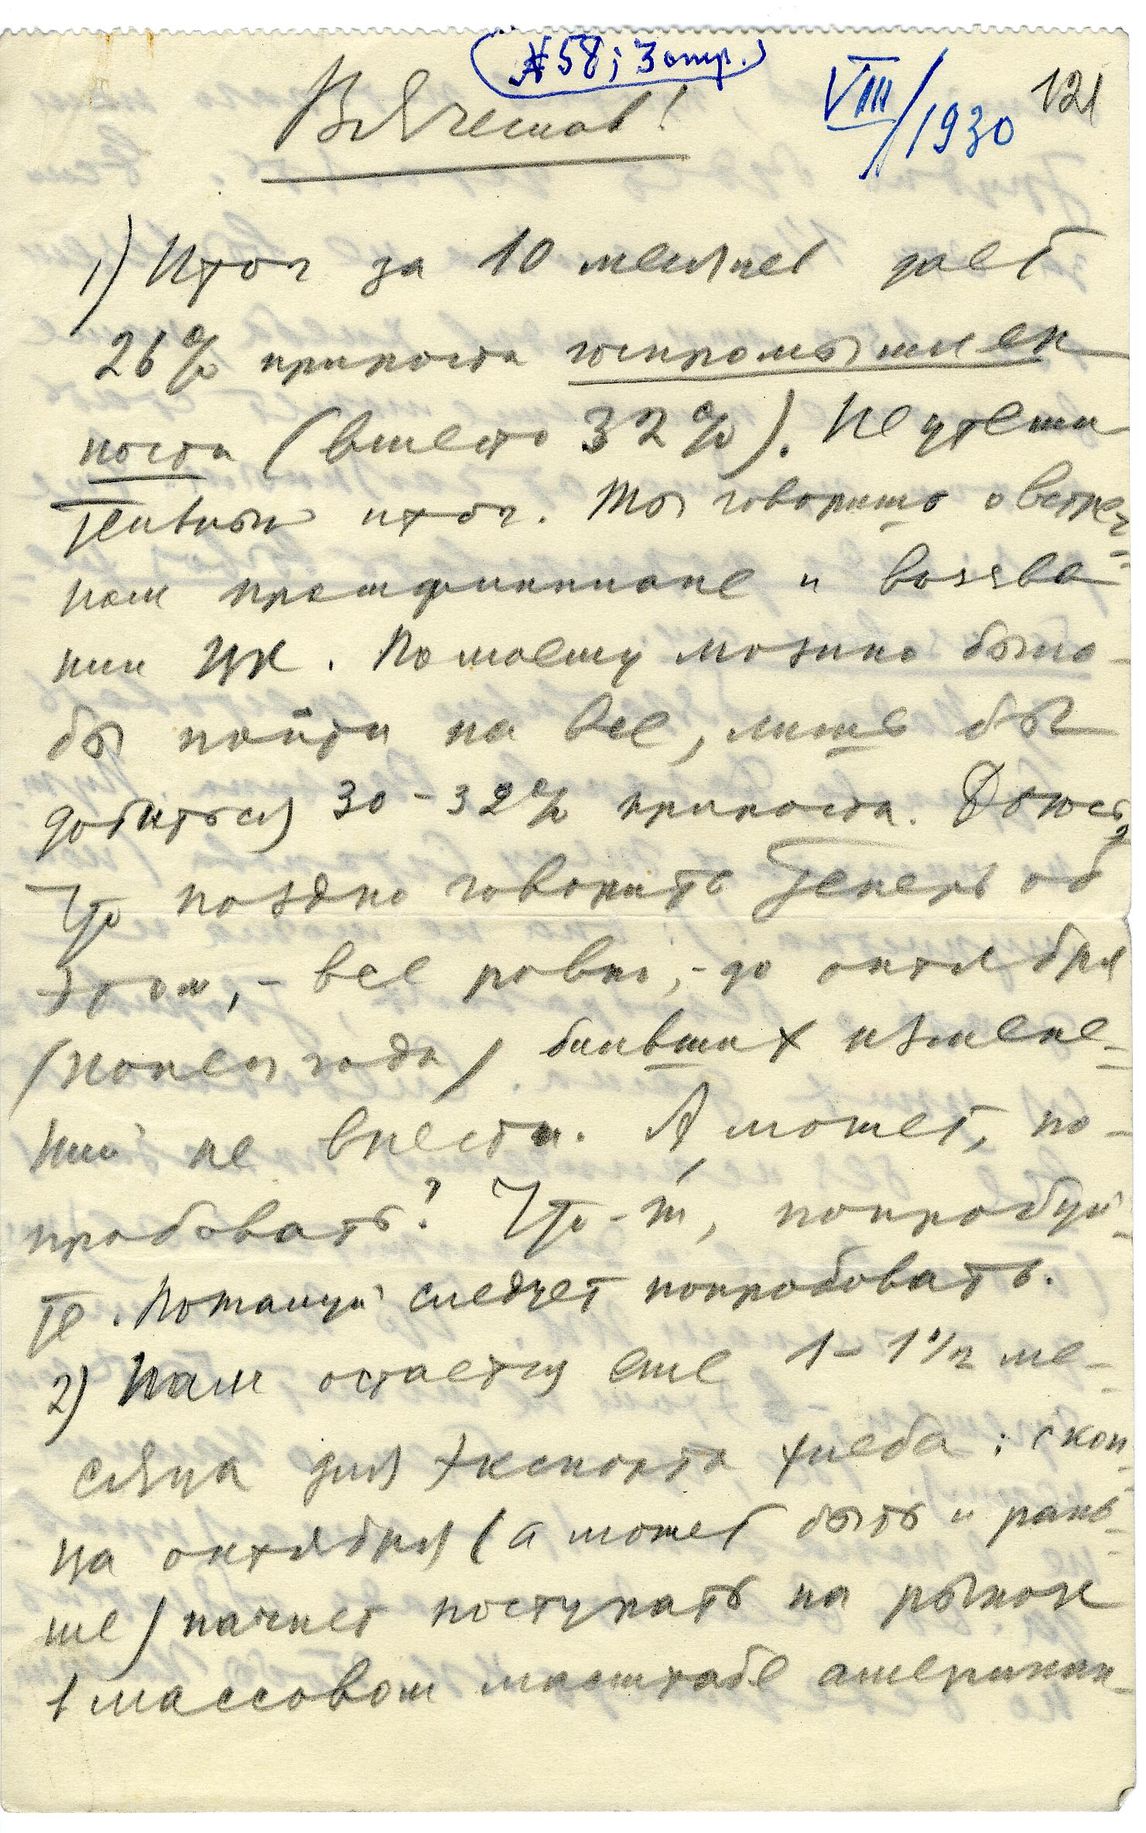 (№58; 3 стр.)
VIII/1930
121
Вячеслав!
1) Итог за 10 месяцев дает
26% прироста госпромышлен
ности (вместо 32%). Неутеши
тельный итог. Ты говоришь о встреч-
ном промфинплане и воззва-
нии ЦК. По моему можно было-
бы пойти на все, лишь бы
добиться 30-32% прироста. Боюсь,
что поздно говорить теперь об
этом, - все равно, - до октября
(конец года) больших измене-
ний не внести. А может, по-
пробовать? Что-ж, попробуй-
те. Пожалуй следует попробовать.
2) Нам остается еще 1 – 1 1/2 ме-
сяца для экспорта хлеба: с кон-
ца октября (а может быть и рань-
ше) начнет поступать на рынок
в массовом масштабе американ-